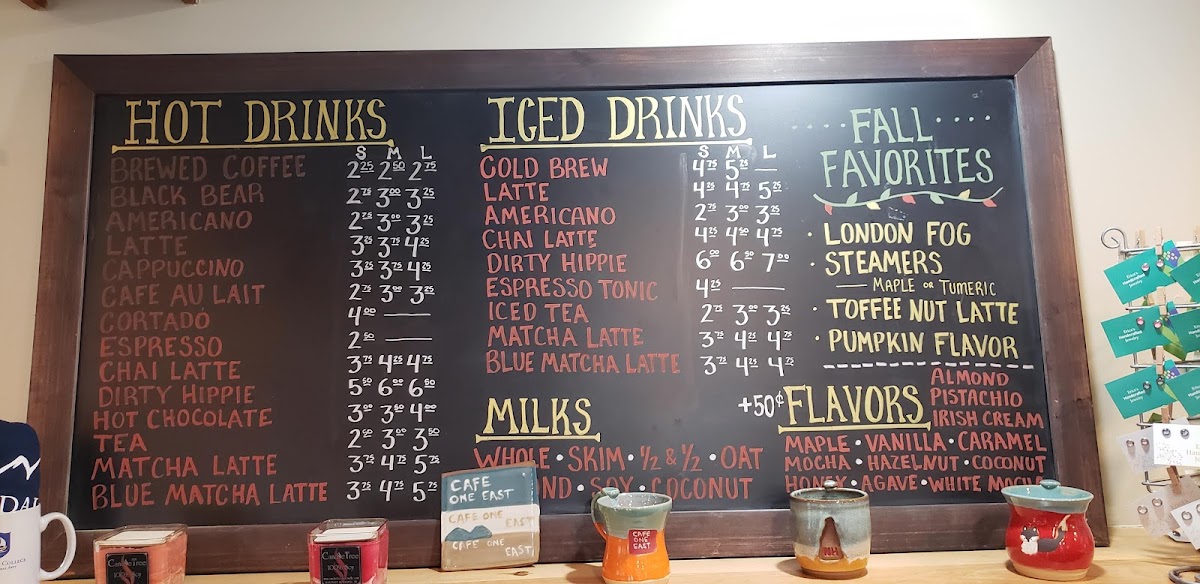 HOT DRINKS
S M L
BREWED COFFEE 2.25 2.50 2.75
BLACK BEAR 2.75 3.00 3.25
AMERICANO 2.75 3.00 3.25
LATTE 3.25 3.75 4.25
CAPPUCCINO 3.25 3.75 4.25
CAFE AU LAIT 2.75 3.00 3.25
CORTADO 4.00 —
ESPRESSO 2.50 —
CHAI LATTE 3.75 4.25 4.75
DIRTY HIPPIE 5.50 6.00 6.50
HOT CHOCOLATE 3.00 3.50 4.00
TEA 2.50 3.00 3.50
MATCHA LATTE 3.75 4.75 5.75
BLUE MATCHA LATTE 3.75 4.75 5.75
ICED DRINKS
S M L
COLD BREW 4.75 5.75 —
LATTE 4.25 4.75 5.25
AMERICANO 2.75 3.00 3.25
CHAI LATTE 4.25 4.50 4.75
DIRTY HIPPIE 6.00 6.50 7.00
ESPRESSO TONIC 4.25 —
ICED TEA 2.75 3.00 3.25
MATCHA LATTE 3.75 4.25 4.75
BLUE MATCHA LATTE 3.75 4.25 4.75
MILKS
WHOLE • SKIM • ½ & ½ • OAT
SOY • COCONUT
FALL
FAVORITES
· LONDON FOG
· STEAMERS
— MAPLE OR TUMERIC
· TOFFEE NUT LATTE
· PUMPKIN FLAVOR
+50¢ FLAVORS
ALMOND
PISTACHIO
IRISH CREAM
MAPLE • VANILLA • CARAMEL
MOCHA • HAZELNUT • COCONUT
HONEY • AGAVE • WHITE MOCHA
CAFE
ONE EAST
CAFE ONE
EAST
CAFE ONE
EAST
CAFE
ONE
EAST
NH
CandleTree
100% Soy
CandleTree